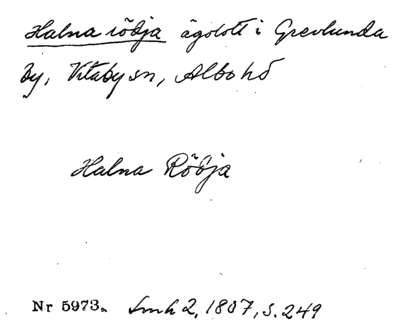 Halna röðja ägolott i Grevlunda
by, Vitaby sn, Albo hd
Halna Röðja
Nr 5973. Lmh 2, 1807, s. 249